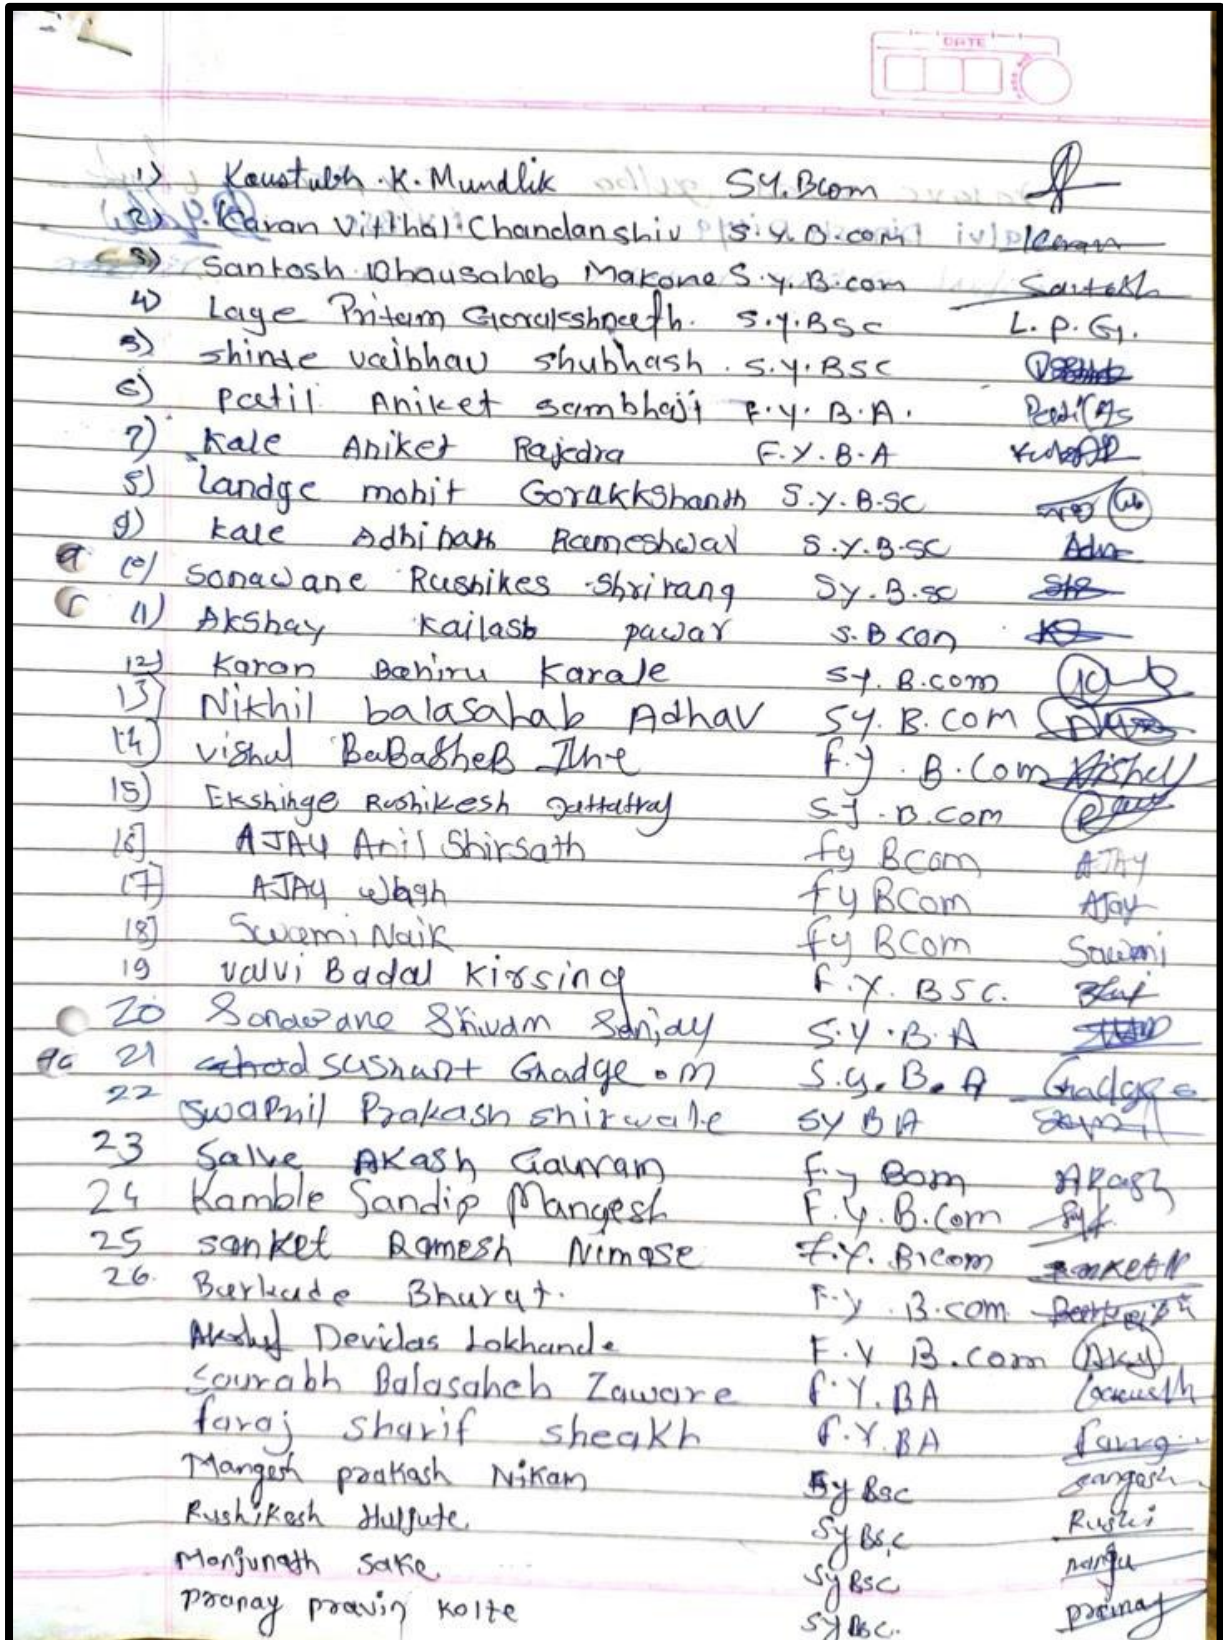 DATE
1) Kaustubh .K. Mundlik SY.Bcom
2) Karan Vitthal Chandanshiv S.Y.B.com Karan
3) Santosh Bhausaheb Makone S.y.B.com Santosh
4) Lage Pritam Gorakshnath. S.y.BSc L.P.G.
5) shinde vaibhav shubhash. S.y.BSC
6) patil Aniket sambhaji F.y.B.A. Patil
7) Kale Aniket Rajedra F.Y.B.A
8) landge mohit Gorakkshanth S.Y.B.SC
9) kale Adhinath Rameshwar S.Y.B.SC
10) Sonawane Rushikes Shrirang Sy.B.sc
11) Akshay Kailash pawar S.B con
12) Karan Bahiru Karale SY.B.com
13) Nikhil balasahab Adhav SY.B.COM
14) vishal BaBasheB Ihe F.y.B.Com Vishal
15) Ekshinge Rushikesh Dattatray S.J.B.com
16) AJAY Anil Shirsath fy BCom AJAY
17) AJAY Wagh fy BCom AJay
18) Swami Naik fy BCom Sawmi
19 valvi Badal Kirsing F.Y.BSC.
20 Sonawane Shivam Sanjay S.Y.B.A
21 sushant Ghadge .m S.y.B.A Ghadge
22 Swapnil Prakash shirwale SY BA
23 Salve Akash Gauram F.y Bom Akash
24 Kamble Sandip Mangesh F.Y.B.Com
25 sanket Ramesh Nimase F.Y.B.com
26. Barkade Bharat. F.y.B.com
Akshay Devidas Lokhande F.Y B.com Aky
Saurabh Balasaheb Zaware F.Y.BA
faraj sharif sheakh F.Y.BA
Mangesh prakash Nikam Sy Bsc
Rushikesh Hulgute Sy Bsc Rushi
Manjunath Sake Sy BSC manju
pranay pravin kolte Sy Bsc. pranay